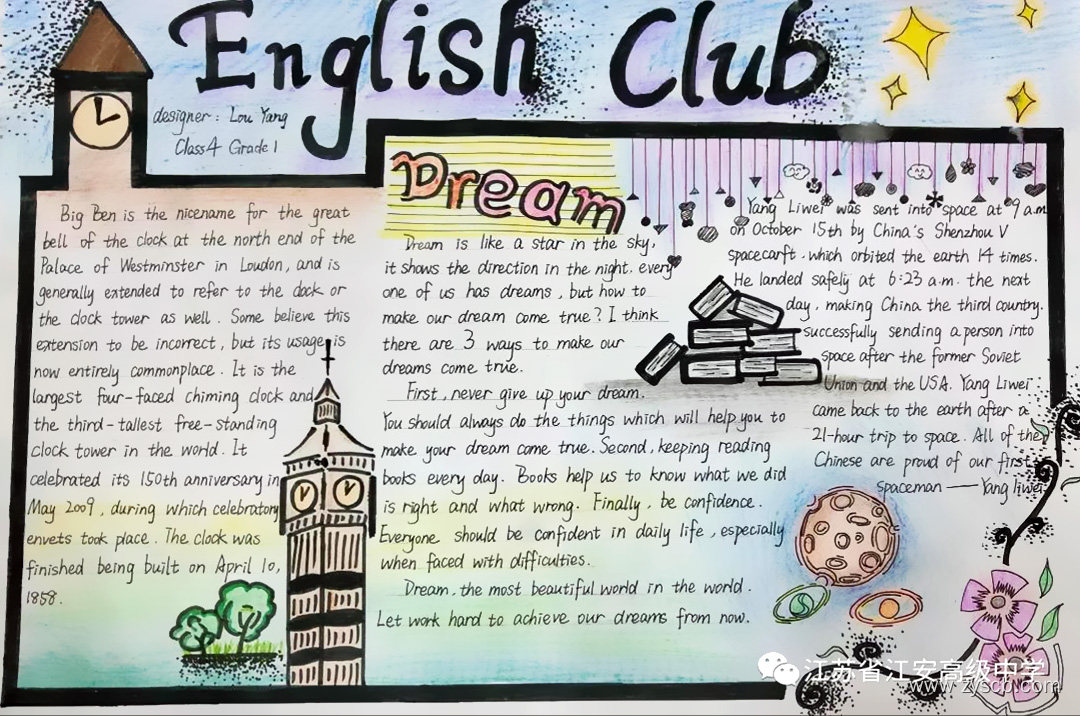 English Club
designer: Lou Yang
Class4 Grade1
Big Ben is the nicename for the great
bell of the clock at the north end of the
Palace of Westminster in Loudon, and is
generally extended to refer to the clock or
the clock tower as well. Some believe this
extension to be incorrect, but its usage is
now entirely commonplace. It is the
largest four-faced chiming clock and
the third-tallest free-standing
clock tower in the world. It
celebrated its 150th anniversary in
May 2009, during which celebratory
envets took place. The clock was
finished being built on April 10,
1858.
Dream
Dream is like a star in the sky,
it shows the direction in the night. every
one of us has dreams, but how to
make our dream come true? I think
there are 3 ways to make our
dreams come true.
First, never give up your dream.
You should always do the things which will help you to
make your dream come true. Second, keeping reading
books every day. Books help us to know what we did
is right and what wrong. Finally, be confidence.
Everyone should be confident in daily life, especially
when faced with difficulties.
Dream. the most beautiful world in the world.
Let work hard to achieve our dreams from now.
Yang Liwei was sent into space at 9 a.m
on October 15th by China's Shenzhou V
spacecarft. which orbited the earth 14 times.
He landed safely at 6:23 a.m. the next
day, making China the third country.
successfully sending a person into
space after the former Soviet
Union and the USA. Yang Liwei
came back to the earth after a
21-hour trip to space. All of the
Chinese are proud of our first
spaceman — Yang liwei
江苏省江安高级中学
www.zyscb.com